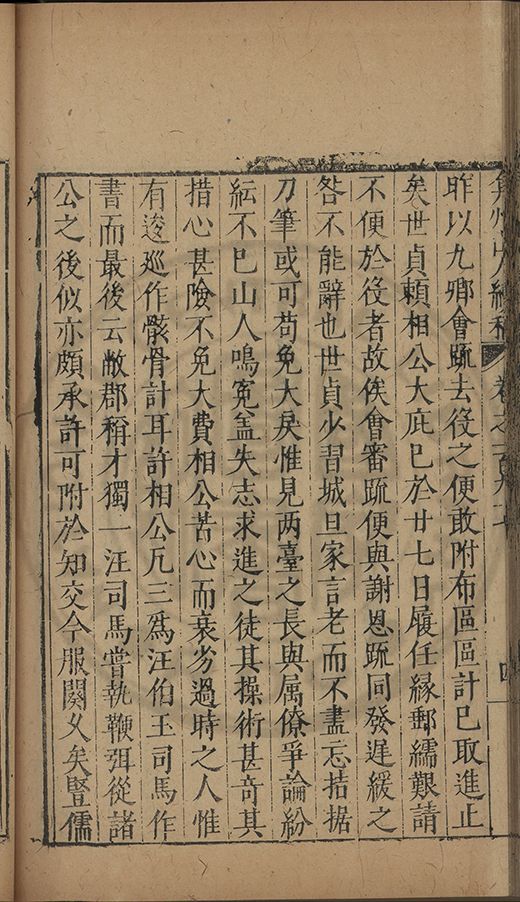 弇州山人續稿 卷之一百九十七 四
昨以九卿會䟽去役之便敢附布區區計已取進止
矣世貞頼相公大庇已於廿七日履任緣郵繻艱請
不便於役者故俟會審䟽便與謝恩䟽同發遲緩之
咎不能辭也世貞少習城旦家言老而不盡忘拮据
刀筆或可苟免大戾惟見两臺之長與属僚爭論紛
紜不已山人鳴冤盖失志求進之徒其操術甚竒其
措心甚險不免大費相公苦心而衰劣過時之人惟
有逡廵作骸骨計耳許相公凡三為汪伯玉司馬作
書而最後云敝郡稱才獨一汪司馬嘗執鞭弭從諸
公之後似亦頗承許可附於知交今服闋久矣豎儒